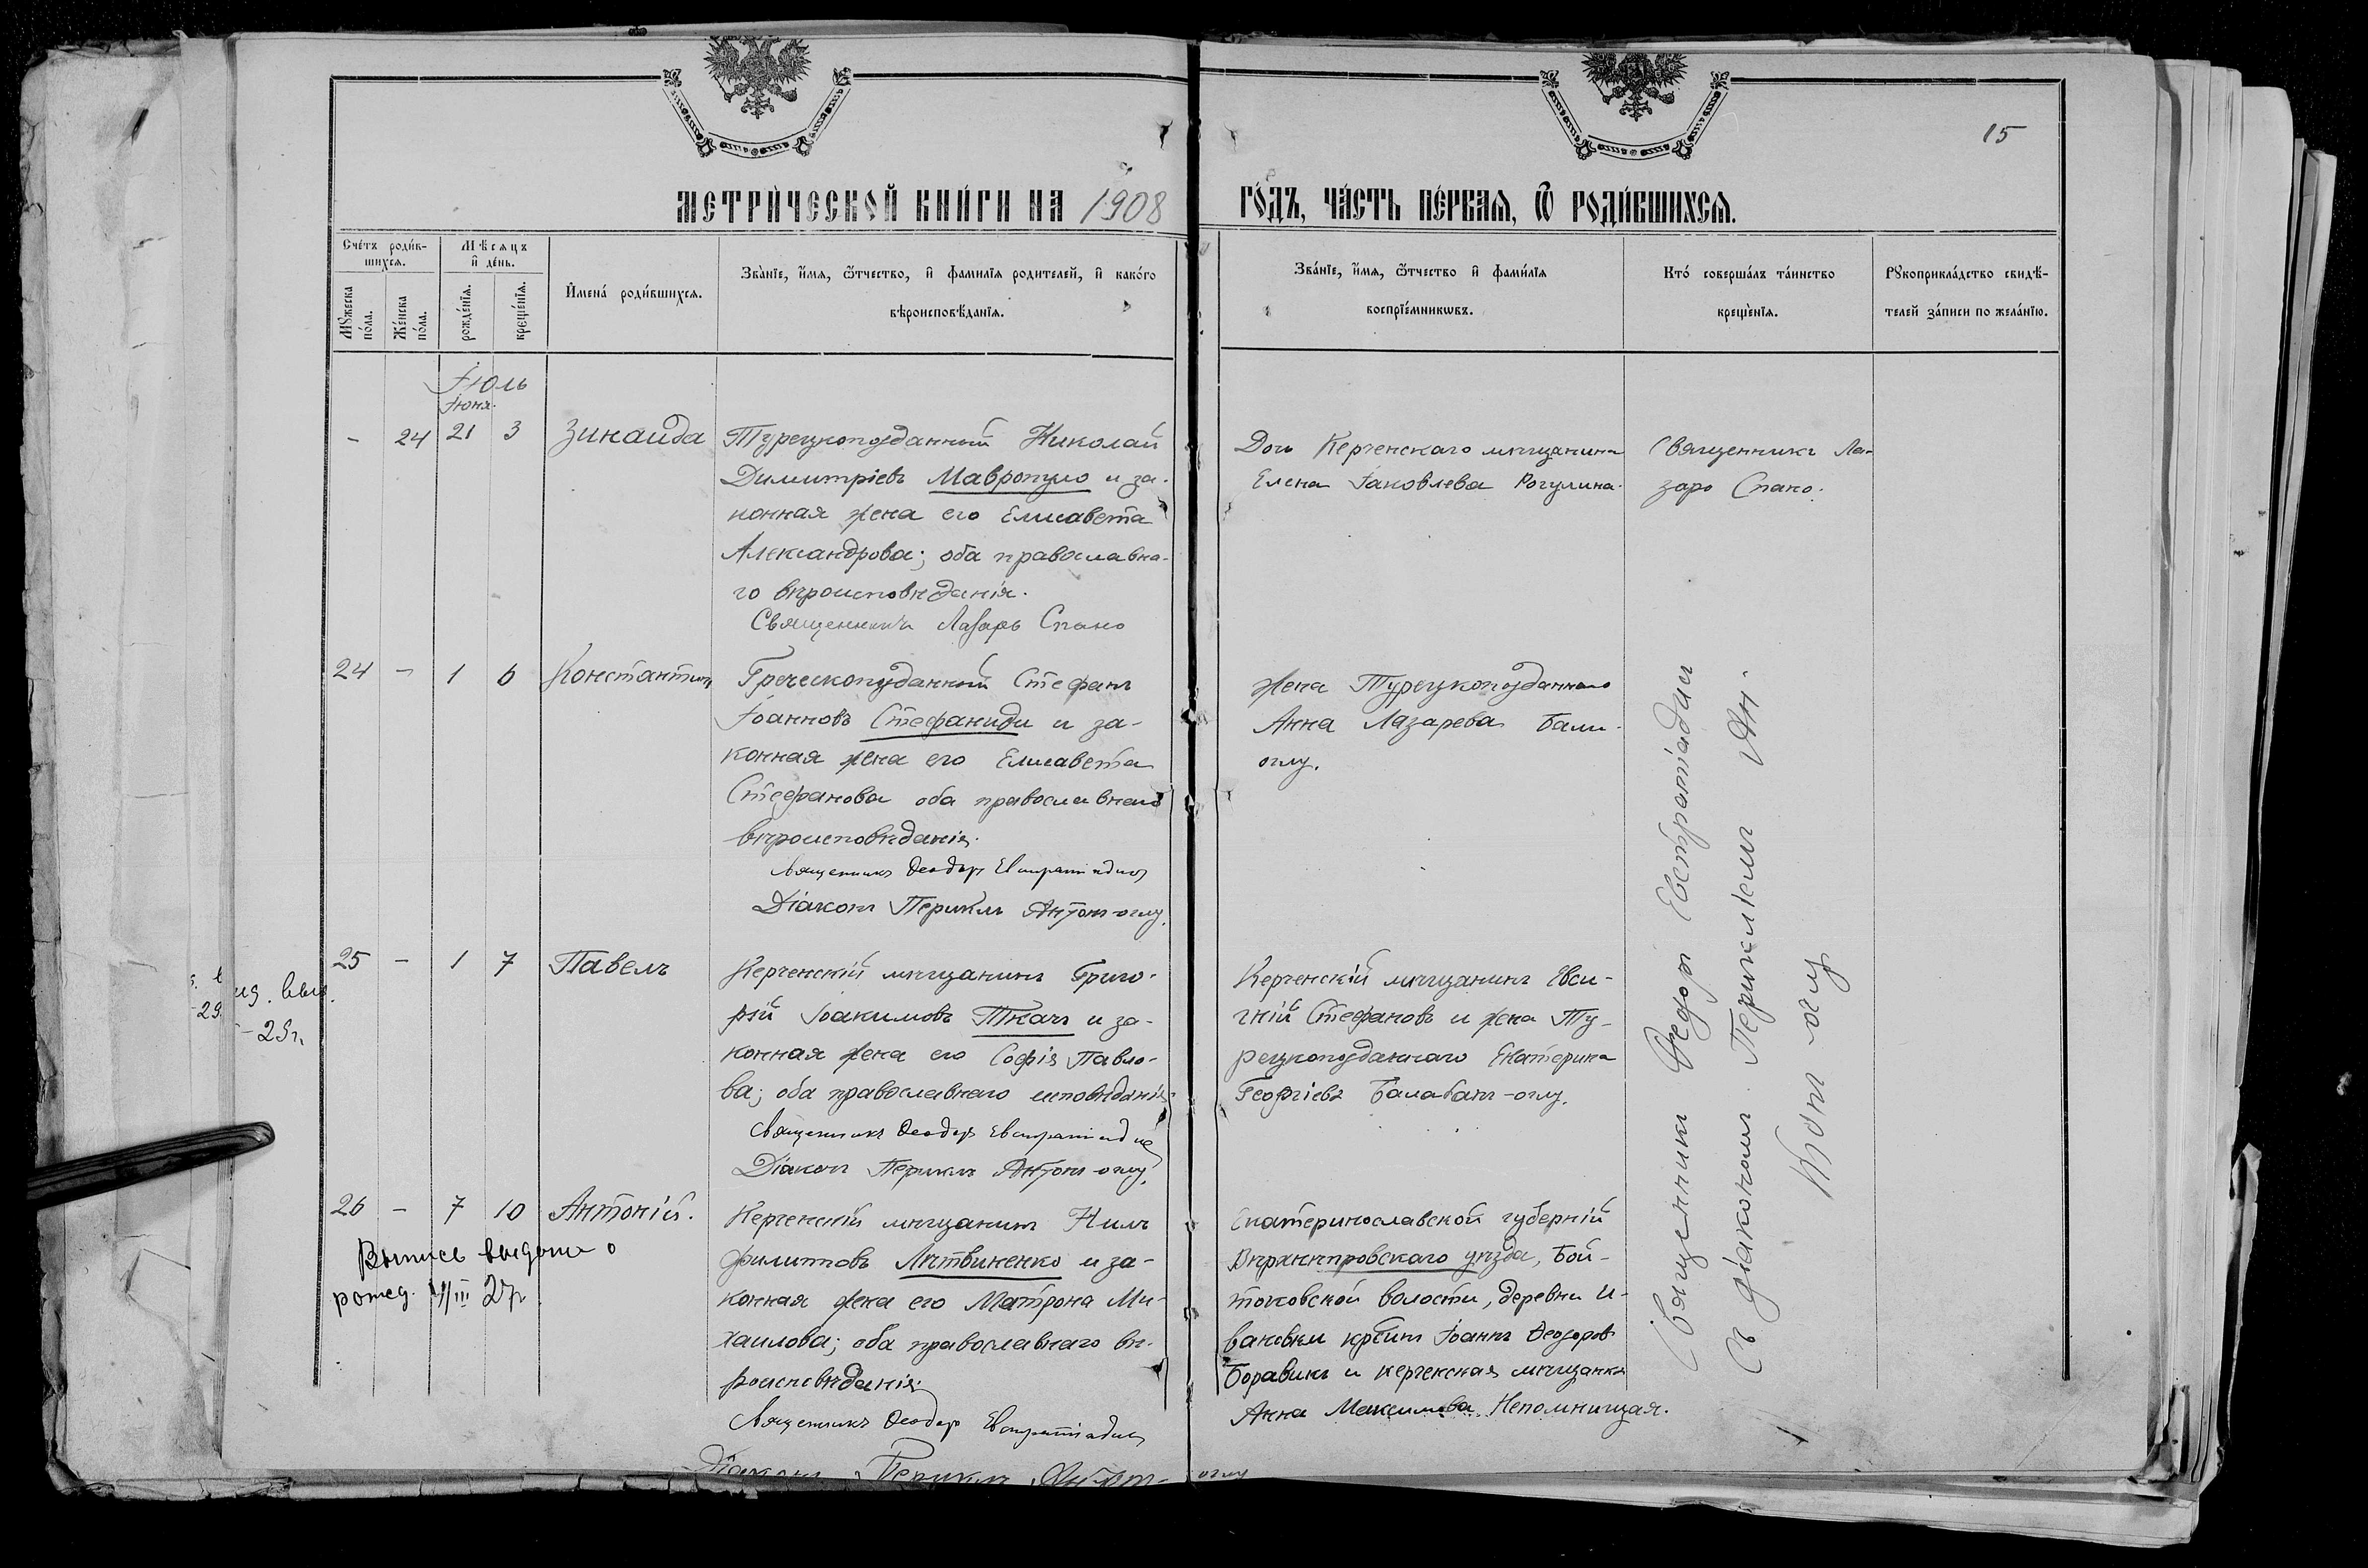 15
МЕТРИ́ЧЕСКОЙ КНИ́ГИ НА 1908 ГО́ДЪ, ЧА́СТЬ ПЕ́РВАЯ, Ѿ РОДИ́ВШИХСЯ.
Сче́тъ роди́в-
шихся.
Мѣ́сяцъ
и҆ де́нь.
Мꙋ́жеска
по́ла.
Же́нска
по́ла.
рожде́нїя.
креще́нїя.
И҆мена̀ роди́вшихся.
Зва́нїе, и҆́мя, ѻ҆́тчество, и҆ фами́лїя роди́телей, и҆ како́го
вѣроисповѣ́данїя.
Зва́нїе, и҆́мя, ѻ҆́тчество и҆ фами́лїя
воспрїе́мникѡвъ.
Кто̀ соверша́лъ та́инство
креще́нїя.
Рꙋкоприкла́дство свидѣ́-
телей за́писи по жела́нїю.
Іюль
Іюня.
- 24 21 3 Зинаида
Турецкоподданный Николай
Димитріевъ Мавропуло и за-
конная жена его Елисавета
Александрова; оба православна-
го вѣроисповѣданія.
Священникъ Лазарь Спано
Дочь Керченскаго мѣщанина
Елена Іаковлева Рогулина.
Священникъ Ла-
заръ Спано.
24 - 1 6 Константинъ
Греческоподданный Стефанъ
Іоанновъ Стефаниди и за-
конная жена его Елисавета
Стефанова оба православнаго
вѣроисповѣданія.
Священникъ Ѳеодоръ Евстратіадисъ
Діаконъ Периклъ Антонъ-оглу.
Жена Турецкоподданнаго
Анна Лазарева Бали-
оглу.
25 - 1 7 Павелъ
Керченскій мѣщанинъ Григо-
рій Іоакимовъ Ткачъ и за-
конная жена его Софія Павло-
ва; оба православнаго исповѣданія.
Священникъ Ѳеодоръ Евстратіадис
Діаконъ Периклъ Антонъ-оглу.
Керченскій мѣщанинъ Евси-
гній Стефановъ и жена Ту-
рецкоподданнаго Екатерина
Георгіева Балабанъ-оглу.
26 - 7 10 Антоній.
Выпись выдана о
рожд. 27г.
Керченскій мѣщанинъ Нилъ
Филипповъ Литвиненко и за-
конная жена его Матрона Ми-
хаилова; оба православнаго вѣ-
роисповѣданія.
Священникъ Ѳеодоръ Евстратіадисъ
Діаконъ Периклъ Антонъ-оглу
Екатеринославской губерній
Верхнѣпровскаго уѣзда, Бой-
токовской волости, деревни И-
вановки крест Іоаннъ Ѳеодоров
Боравикъ и керченская мѣщанка
Анна Максимова Непомнящая.
Священникъ Ѳедоръ Евстратіадисъ
Съ діакономъ Перикліемъ Ан-
тонъ оглу